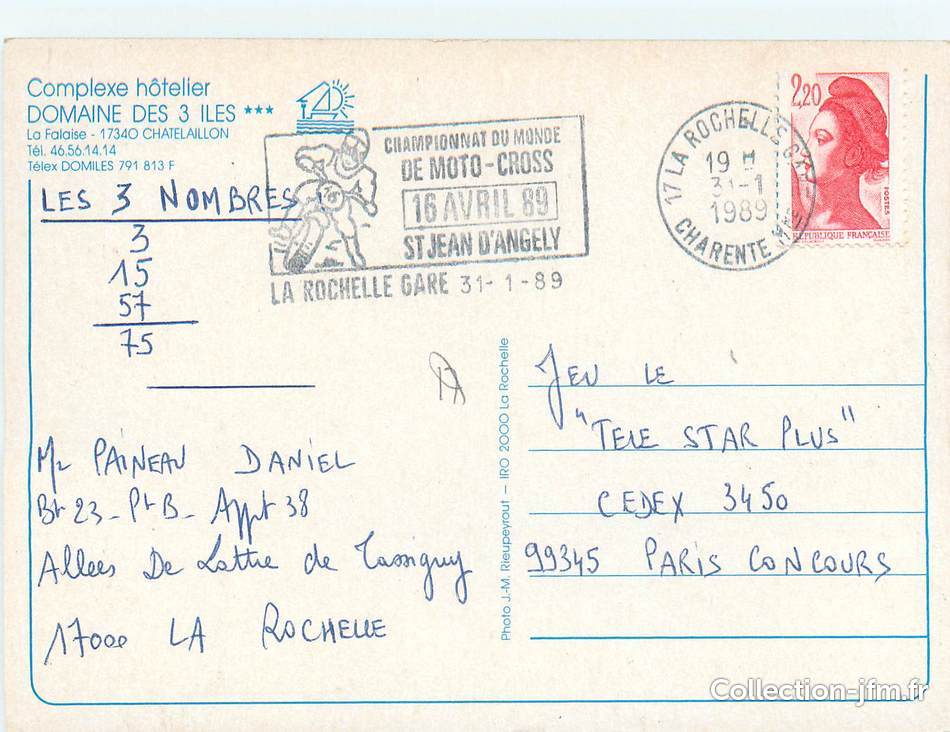 Complexe hôtelier
DOMAINE DES 3 ILES ***
La Falaise - 17340 CHATELAILLON
Tél. 46.56.14.14
Télex DOMILES 791 813 F
LES 3 NOMBRES
3
15
57
75
CHAMPIONNAT DU MONDE
DE MOTO-CROSS
16 AVRIL 89
ST JEAN D'ANGELY
LA ROCHELLE GARE 31-1-89
17 LA ROCHELLE GARE
19 H
31-1
1989
CHARENTE
2,20
POSTES
REPUBLIQUE FRANÇAISE
Mr PAINEAU DANIEL
Bt 23 - Pt B - Appt 38
Allées De Lattre de Tassigny
17000 LA ROCHELLE
Photo J.-M. Rieupeyrout — IRO 2000 La Rochelle
JEU LE
"TELE STAR PLUS"
CEDEX 3450
99345 PARIS CONCOURS
Collection-jfm.fr